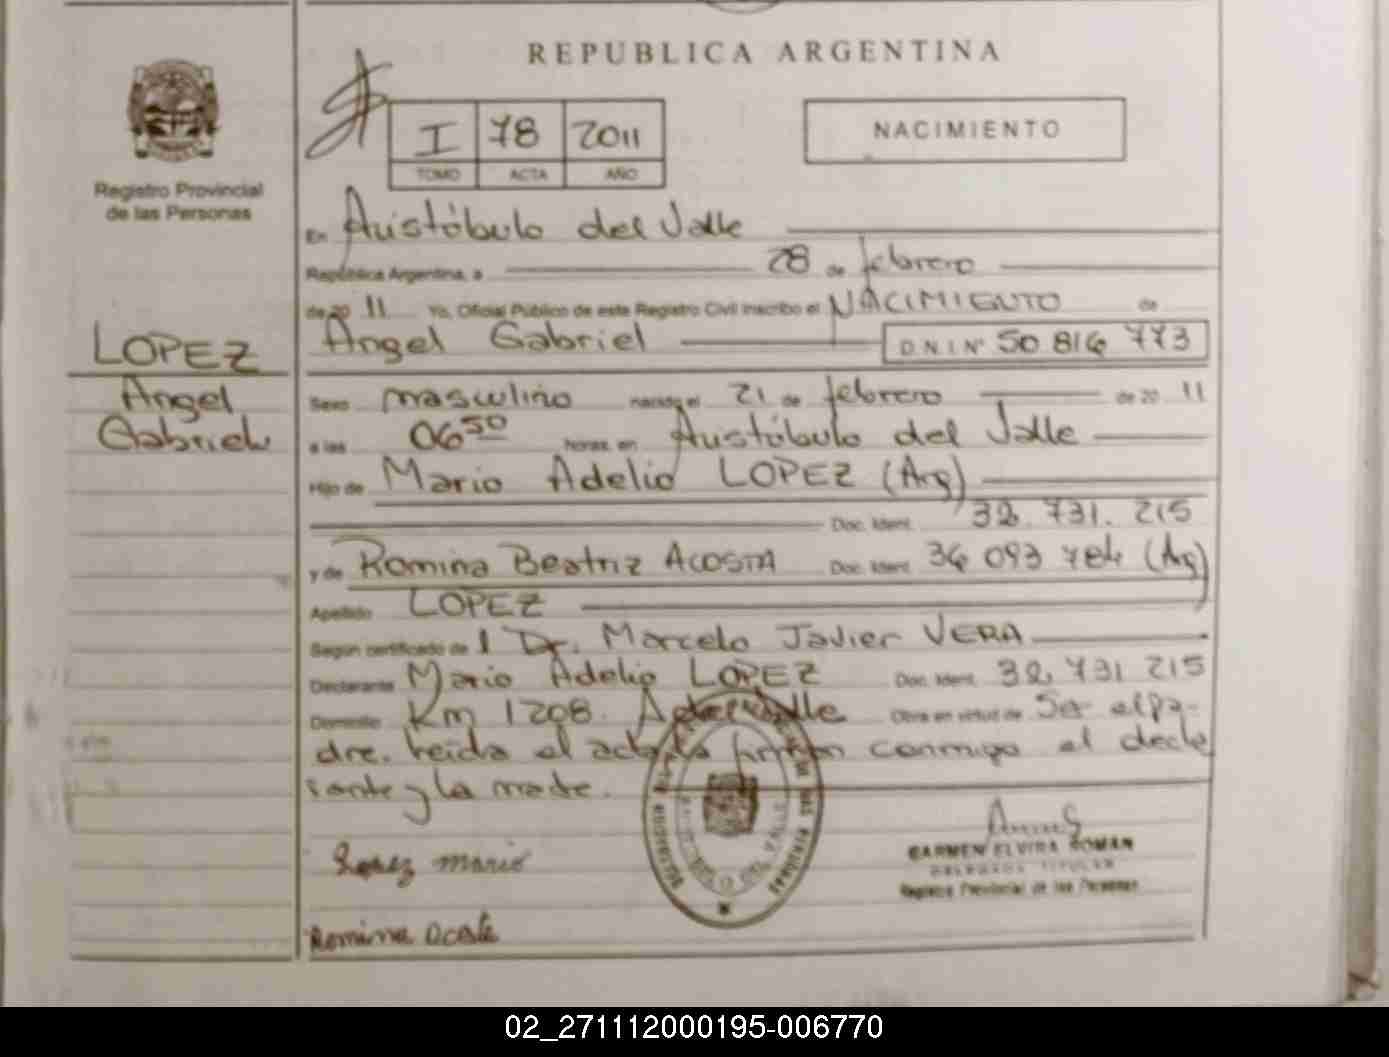 REPUBLICA ARGENTINA
Registro Provincial
de las Personas
I 78 2011
TOMO ACTA AÑO
NACIMIENTO
En Aristóbulo del Valle
República Argentina, a 28 de febrero
de 20 11 Yo, Oficial Público de este Registro Civil inscribo el NACIMIENTO de
LOPEZ
Angel
Gabriel
Angel Gabriel D.N.I. Nº 50 816 773
Sexo masculino nacido el 21 de febrero de 20 11
a las 06 50 horas en Aristóbulo del Valle
Hijo de Mario Adelio LOPEZ (Arg)
Doc. Ident. 32.731.215
y de Romina Beatriz ACOSTA Doc. Ident. 36 093 784 (Arg)
Apellido LOPEZ
Según certificado de l Dr. Marcelo Javier VERA
Declarante Mario Adelio LOPEZ Doc. Ident. 32 731 215
Domicilio Km 1208. A del Valle Obra en virtud de Ser el pa-
dre. Leída el acta la firman conmigo el decla
rante y la madre.
Lopez Mario
Romina Acosta
CARMEN ELVIRA ROMAN
DELEGADA TITULAR
Registro Provincial de las Personas
02_271112000195-006770